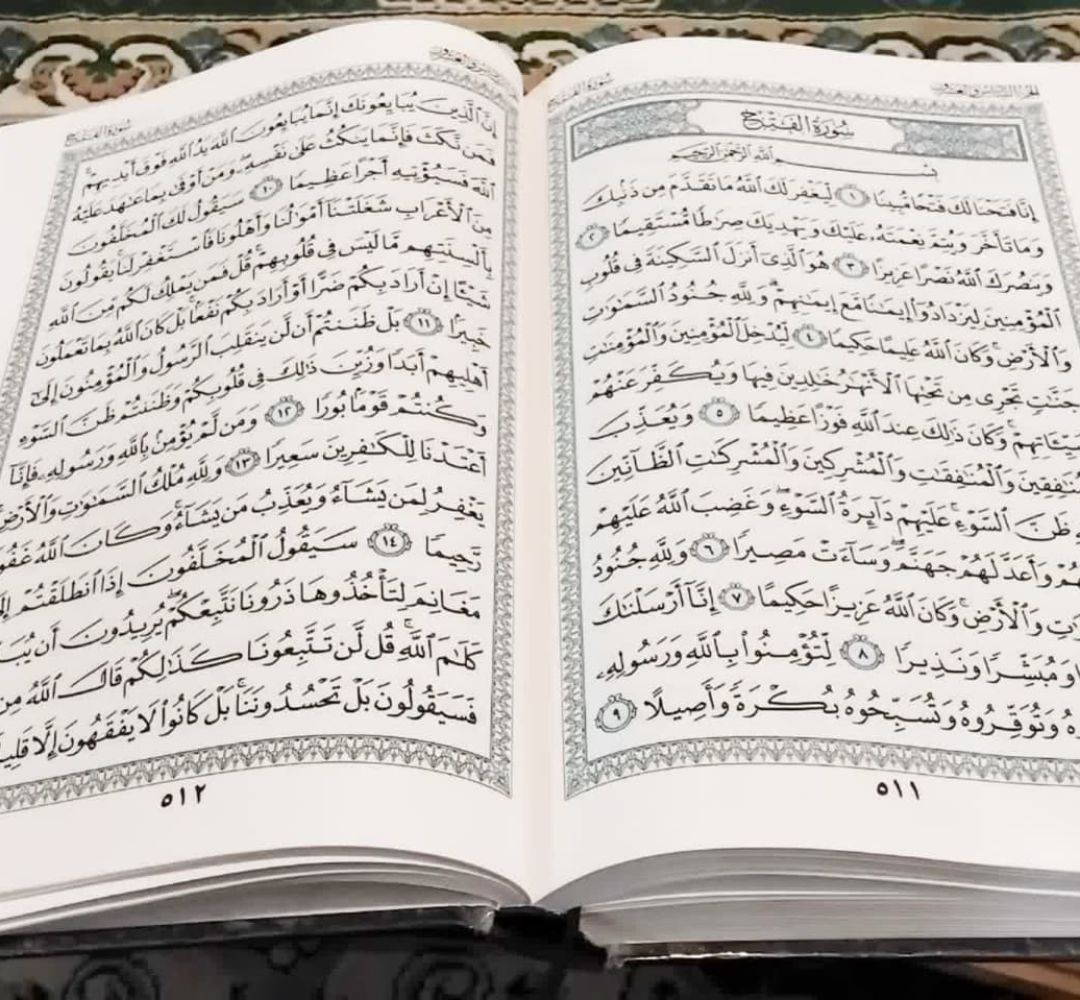 الجزء السادس والعشرون
سُورَةُ الفَتْحِ
سُورَةُ الفَتْحِ
بِسْمِ ٱللَّهِ ٱلرَّحْمَٰنِ ٱلرَّحِيمِ
إِنَّا فَتَحْنَا لَكَ فَتْحًا مُّبِينًا ١ لِّيَغْفِرَ لَكَ ٱللَّهُ مَا تَقَدَّمَ مِن ذَنۢبِكَ
وَمَا تَأَخَّرَ وَيُتِمَّ نِعْمَتَهُۥ عَلَيْكَ وَيَهْدِيَكَ صِرَٰطًا مُّسْتَقِيمًا ٢
وَيَنصُرَكَ ٱللَّهُ نَصْرًا عَزِيزًا ٣ هُوَ ٱلَّذِىٓ أَنزَلَ ٱلسَّكِينَةَ فِى قُلُوبِ
ٱلْمُؤْمِنِينَ لِيَزْدَادُوٓا۟ إِيمَٰنًا مَّعَ إِيمَٰنِهِمْ ۗ وَلِلَّهِ جُنُودُ ٱلسَّمَٰوَٰتِ
وَٱلْأَرْضِ ۚ وَكَانَ ٱللَّهُ عَلِيمًا حَكِيمًا ٤ لِّيُدْخِلَ ٱلْمُؤْمِنِينَ وَٱلْمُؤْمِنَٰتِ
جَنَّٰتٍ تَجْرِى مِن تَحْتِهَا ٱلْأَنْهَٰرُ خَٰلِدِينَ فِيهَا وَيُكَفِّرَ عَنْهُمْ
وَكَانَ ذَٰلِكَ عِندَ ٱللَّهِ فَوْزًا عَظِيمًا ٥ وَيُعَذِّبَ
وَٱلْمُنَٰفِقَٰتِ وَٱلْمُشْرِكِينَ وَٱلْمُشْرِكَٰتِ ٱلظَّآنِّينَ
ظَنَّ ٱلسَّوْءِ ۚ عَلَيْهِمْ دَآئِرَةُ ٱلسَّوْءِ ۖ وَغَضِبَ ٱللَّهُ عَلَيْهِمْ
وَأَعَدَّ لَهُمْ جَهَنَّمَ ۖ وَسَآءَتْ مَصِيرًا ٦ وَلِلَّهِ جُنُودُ
وَٱلْأَرْضِ ۚ وَكَانَ ٱللَّهُ عَزِيزًا حَكِيمًا ٧ إِنَّآ أَرْسَلْنَٰكَ
وَمُبَشِّرًا وَنَذِيرًا ٨ لِّتُؤْمِنُوا۟ بِٱللَّهِ وَرَسُولِهِۦ
وَتُوَقِّرُوهُ وَتُسَبِّحُوهُ بُكْرَةً وَأَصِيلًا ٩
٥١١
سُورَةُ الفَتْحِ
إِنَّ ٱلَّذِينَ يُبَايِعُونَكَ إِنَّمَا يُبَايِعُونَ ٱللَّهَ يَدُ ٱللَّهِ فَوْقَ أَيْدِيهِمْ ۚ
فَمَن نَّكَثَ فَإِنَّمَا يَنكُثُ عَلَىٰ نَفْسِهِۦ ۖ وَمَنْ أَوْفَىٰ بِمَا عَٰهَدَ عَلَيْهُ
ٱللَّهَ فَسَيُؤْتِيهِ أَجْرًا عَظِيمًا ١٠ سَيَقُولُ لَكَ ٱلْمُخَلَّفُونَ
مِنَ ٱلْأَعْرَابِ شَغَلَتْنَآ أَمْوَٰلُنَا وَأَهْلُونَا فَٱسْتَغْفِرْ لَنَا ۚ يَقُولُونَ
بِأَلْسِنَتِهِم مَّا لَيْسَ فِى قُلُوبِهِمْ ۚ قُلْ فَمَن يَمْلِكُ لَكُم مِّنَ ٱللَّهِ
شَيْـًٔا إِنْ أَرَادَ بِكُمْ ضَرًّا أَوْ أَرَادَ بِكُمْ نَفْعًۢا ۚ بَلْ كَانَ ٱللَّهُ بِمَا تَعْمَلُونَ
خَبِيرًۢا ١١ بَلْ ظَنَنتُمْ أَن لَّن يَنقَلِبَ ٱلرَّسُولُ وَٱلْمُؤْمِنُونَ إِلَىٰٓ
أَهْلِيهِمْ أَبَدًا وَزُيِّنَ ذَٰلِكَ فِى قُلُوبِكُمْ وَظَنَنتُمْ ظَنَّ ٱلسَّوْءِ
وَكُنتُمْ قَوْمًۢا بُورًا ١٢ وَمَن لَّمْ يُؤْمِنۢ بِٱللَّهِ وَرَسُولِهِۦ فَإِنَّآ
أَعْتَدْنَا لِلْكَٰفِرِينَ سَعِيرًا ١٣ وَلِلَّهِ مُلْكُ ٱلسَّمَٰوَٰتِ وَٱلْأَرْضِ
يَغْفِرُ لِمَن يَشَآءُ وَيُعَذِّبُ مَن يَشَآءُ ۚ وَكَانَ ٱللَّهُ
رَّحِيمًا ١٤ سَيَقُولُ ٱلْمُخَلَّفُونَ إِذَا ٱنطَلَقْتُمْ
مَغَانِمَ لِتَأْخُذُوهَا ذَرُونَا نَتَّبِعْكُمْ ۖ يُرِيدُونَ أَن
كَلَٰمَ ٱللَّهِ ۚ قُل لَّن تَتَّبِعُونَا كَذَٰلِكُمْ قَالَ ٱللَّهُ مِن
فَسَيَقُولُونَ بَلْ تَحْسُدُونَنَا ۚ بَلْ كَانُوا۟ لَا يَفْقَهُونَ إِلَّا
٥١٢